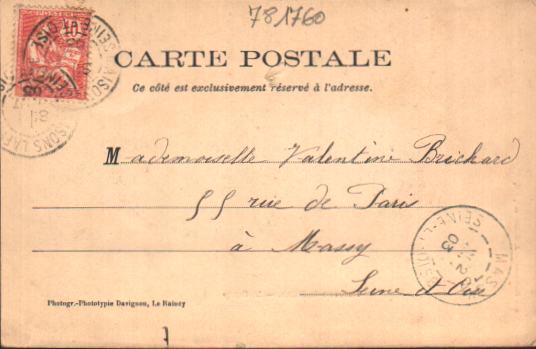 781760
CARTE POSTALE
Ce côté est exclusivement réservé à l'adresse.
Mademoiselle Valentine Brichard
55 rue de Paris
à Massy
Seine et Oise
MAS
SEINE-ET-OISE
03
Photogr.-Phototypie Davignon, Le Raincy